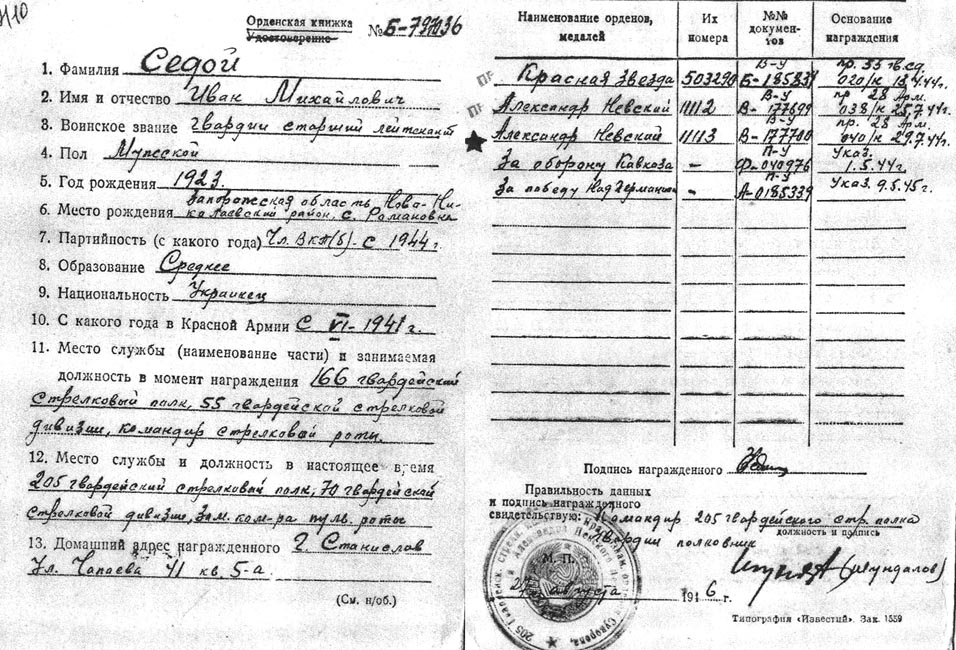 Орденская книжка
Удостоверение
№ Б-797036
1. Фамилия Седой
2. Имя и отчество Иван Михайлович
3. Воинское звание гвардии старший лейтенант
4. Пол Мужской
5. Год рождения 1923.
Запорожская область Ново-Ни-
6. Место рождения колаевский район, с. Романовка
7. Партийность (с какого года) Чл. ВКП(б) - с 1944 г.
8. Образование Среднее
9. Национальность Украинец
10. С какого года в Красной Армии С VI - 1941 г.
11. Место службы (наименование части) и занимаемая
должность в момент награждения 166 гвардейский
стрелковый полк, 55 гвардейской стрелковой
дивизии, командир стрелковой роты.
12. Место службы и должность в настоящее время
205 гвардейский стрелковый полк, 70 гвардейской
стрелковой дивизии, зам. ком-ра пул. роты
13. Домашний адрес награжденного г. Станислав
Ул. Чапаева 41 кв. 5-а.
(См. н/об.)
Наименование орденов, медалей
Их номера
№№ документов
Основание награждения
Красная Звезда 503290 В-У Б-185339 пр. 55 гв. сд
Александр Невский 11112 В-У В-177699 пр 28 Арм. 038/н 25.7.44г.
Александр Невский 11113 В-У В-177700 пр. 28 Арм. 040/н 29.7.44г.
За оборону Кавказа - П-У Ф-040976 Указ. 1.5.44г.
За победу над Германией - П-У А-0185339 Указ. 9.5.45г.
Подпись награжденного
Правильность данных
и подпись награжденного
свидетельствую: Командир 205 гвардейского стр. полка
должность и подпись
Гвардии полковник
М. П.
августа 1946 г.
Типография «Известий». Зак. 1559